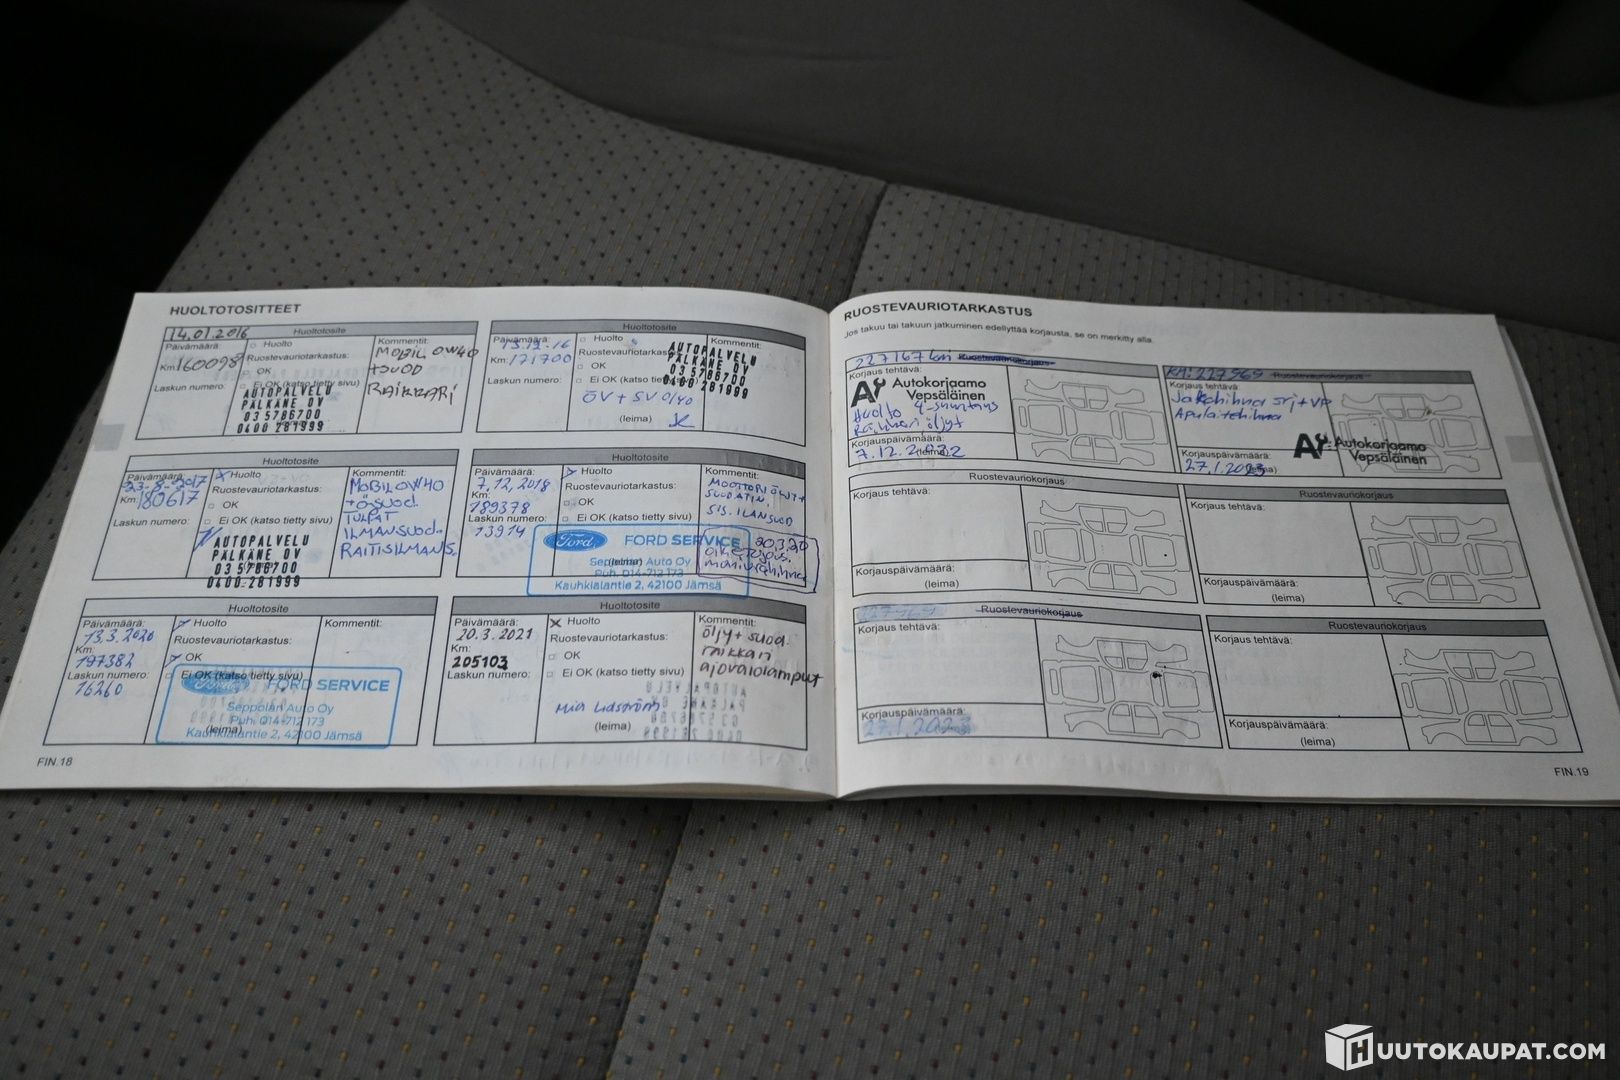 HUOLTOTOSITTEET
14.01.2016
Huoltotosite
Päivämäärä:
Huolto
Kommentit:
Km: 160098
Ruostevauriotarkastus:
OK
Laskun numero:
Ei OK (katso tietty sivu)
MOBIL OW40
+SUOD
RAIKKARI
AUTOPALVELU
PÄLKÄNE OY
03 5786700
0400 281999
Huoltotosite
Päivämäärä:
13.12.16
Huolto
Kommentit:
Km: 171700
Ruostevauriotarkastus:
OK
Laskun numero:
Ei OK (katso tietty sivu)
ÖV + SV 0/40
(leima)
AUTOPALVELU
PÄLKÄNE OY
03 5786700
0400 281999
Huoltotosite
Päivämäärä:
23-8-2017
Huolto
Kommentit:
Km: 180617
Ruostevauriotarkastus:
OK
Laskun numero:
Ei OK (katso tietty sivu)
MOBIL OW40
+ÖSUOD.
TULPAT
ILMANSUOD.
RAITISILMANS.
AUTOPALVELU
PÄLKÄNE OY
03 5786700
0400 281999
Huoltotosite
Päivämäärä:
7.12.2018
Huolto
Kommentit:
Km:
189378
Ruostevauriotarkastus:
OK
Laskun numero:
13914
Ei OK (katso tietty sivu)
MOOTTORIÖLJY+
SUODATIN,
SIS. ILMANSUOD
20.3.20
Ford
FORD SERVICE
Seppolan Auto Oy
Puh. 014-712 173
Kauhkialantie 2, 42100 Jämsä
(leima)
Huoltotosite
Päivämäärä:
13.3.2020
Huolto
Kommentit:
Km:
197382
Ruostevauriotarkastus:
OK
Laskun numero:
16260
Ei OK (katso tietty sivu)
Ford
FORD SERVICE
Seppolan Auto Oy
Puh. 014-712 173
Kauhkialantie 2, 42100 Jämsä
(leima)
Huoltotosite
Päivämäärä:
20.3.2021
Huolto
Kommentit:
Km:
205103
Ruostevauriotarkastus:
OK
Laskun numero:
Ei OK (katso tietty sivu)
öljy + suod.
raikkari
ajovalolamput
(leima)
FIN.18
RUOSTEVAURIOTARKASTUS
Jos takuu tai takuun jatkuminen edellyttää korjausta, se on merkitty alla.
227167 km
Ruostevauriokorjaus
Korjaus tehtävä:
Autokorjaamo
Vepsäläinen
Huolto 4-suuntaus
Raikkari öljyt
Korjauspäivämäärä:
7.12.2022
(leima)
KM: 227969
Ruostevauriokorjaus
Korjaus tehtävä:
Jakohihna srj+VP
Apulaitehihna
Autokorjaamo
Vepsäläinen
Korjauspäivämäärä:
27.1.2023
(leima)
Ruostevauriokorjaus
Korjaus tehtävä:
Korjauspäivämäärä:
(leima)
Ruostevauriokorjaus
Korjaus tehtävä:
Korjauspäivämäärä:
(leima)
227969
Ruostevauriokorjaus
Korjaus tehtävä:
Korjauspäivämäärä:
27.1.2023
Ruostevauriokorjaus
Korjaus tehtävä:
Korjauspäivämäärä:
(leima)
FIN.19
HUUTOKAUPAT.COM